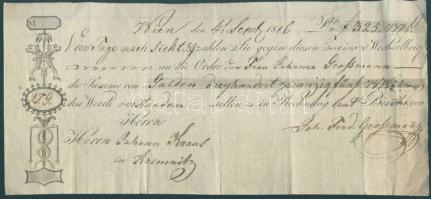 Wien den Sept. 1816 Pr f 325
Vier Tage nach Sicht zahlen Sie gegen diesen Wechselbrief
an die Ordre der Frau Johanna Großmann
die Summe von Gulden dreyhundert zwanzig fünf
den Werth stellen in Rechnung laut Bericht von
Herrn
Herrn Johann Kraus Joh. Ferd. Großmann
in Kremnitz